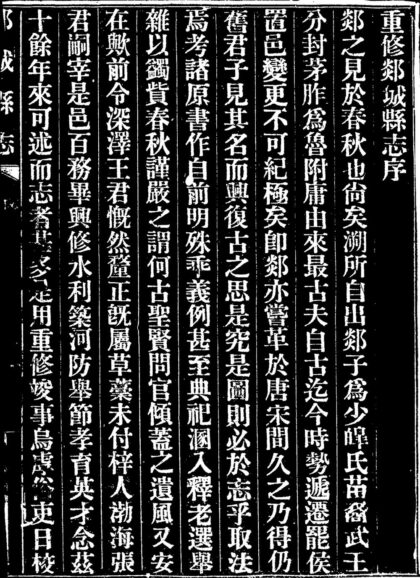 重修郯城縣志序
郯之見於春秋也尚矣溯所自出郯子為少皞氏苗裔武王
分封茅胙為魯附庸由來最古夫自古迄今時勢遞遷罷侯
置邑變更不可紀極矣卽郯亦嘗革於唐宋間久之乃得仍
舊君子見其名而興復古之思是究是圖則必於志乎取法
焉考諸原書作自前明殊乖義例甚至典祀溷入釋老選舉
雜以蠲貲春秋謹嚴之謂何古聖賢問官傾蓋之遺風又安
在歟前令深澤王君慨然釐正旣屬草藁未付梓人渤海張
君嗣宰是邑百務畢興修水利築河防舉節孝育英才念茲
十餘年來可述而志者甚多是用重修竣事烏虖俗吏日校
郯城縣志